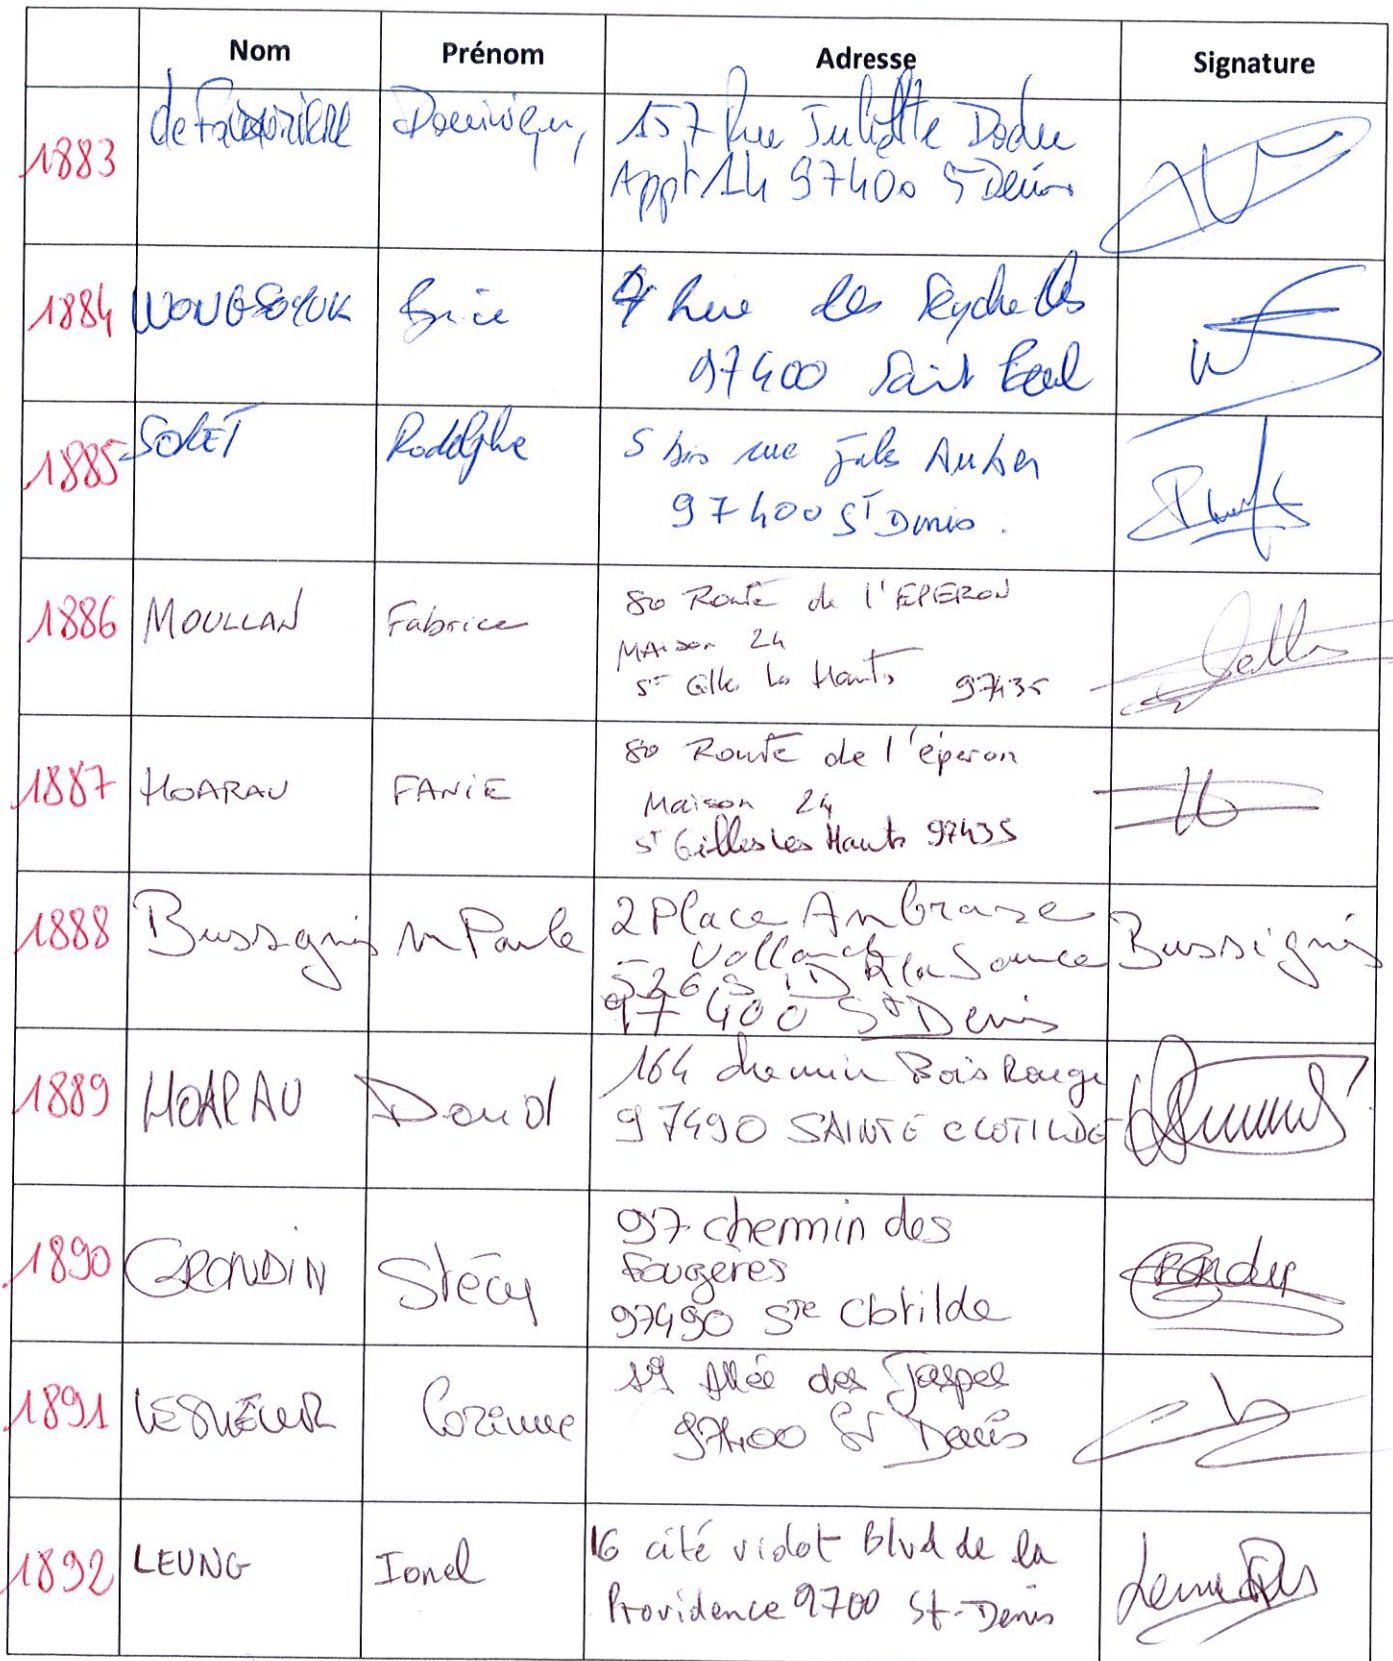 Nom Prénom Adresse Signature
1883 Dominique, 157 Rue Juliette Dodu
Appt 14 97400 St Denis
1884 Brice 7 Rue des Seychelles
97400 Saint Paul
1885 SORET Rodolphe 5 bis rue Jules Auber
97400 St Denis.
1886 MOULLAN Fabrice 80 Route de l'EPERON
MAison 24
St Gilles les Hauts 97435
1887 HOARAU FANIE 80 Route de l'éperon
Maison 24
St Gilles Les Hauts 97435
1888 M Paule 2 Place Ambroise Bussignis
Vollard
la Source
97400 St Denis
1889 HOARAU David 164 chemin Bois Rouge
97490 SAINTE CLOTILDE
1890 GRONDIN Stécy 97 chemin des
Fougères
97490 Ste Clotilde
1891 LESUEUR Corinne 19 Allée des Jaspes
97400 St Denis
1892 LEUNG Ionel 16 cité vidot Blvd de la
Providence 9700 St-Denis